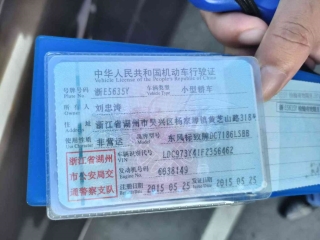 中华人民共和国机动车行驶证
Vehicle License of the People's Republic of China
号牌号码 浙E5635Y 车辆类型 小型轿车
Plate No. Vehicle Type
所有人 刘忠涛
Owner
住址 浙江省湖州市吴兴区杨家埠镇黄芝山路3184
Address
使用性质 非营运 品牌型号 东风标致牌DC7186LSBB
Use Character Model
浙江省湖州 车辆识别代号 LDC973X41F2356462
市公安局交 VIN
发动机号码 6638149
通警察支队 Engine No.
注册日期 2015 05 25 发证日期 2015 05 25
Register Date Issue Date